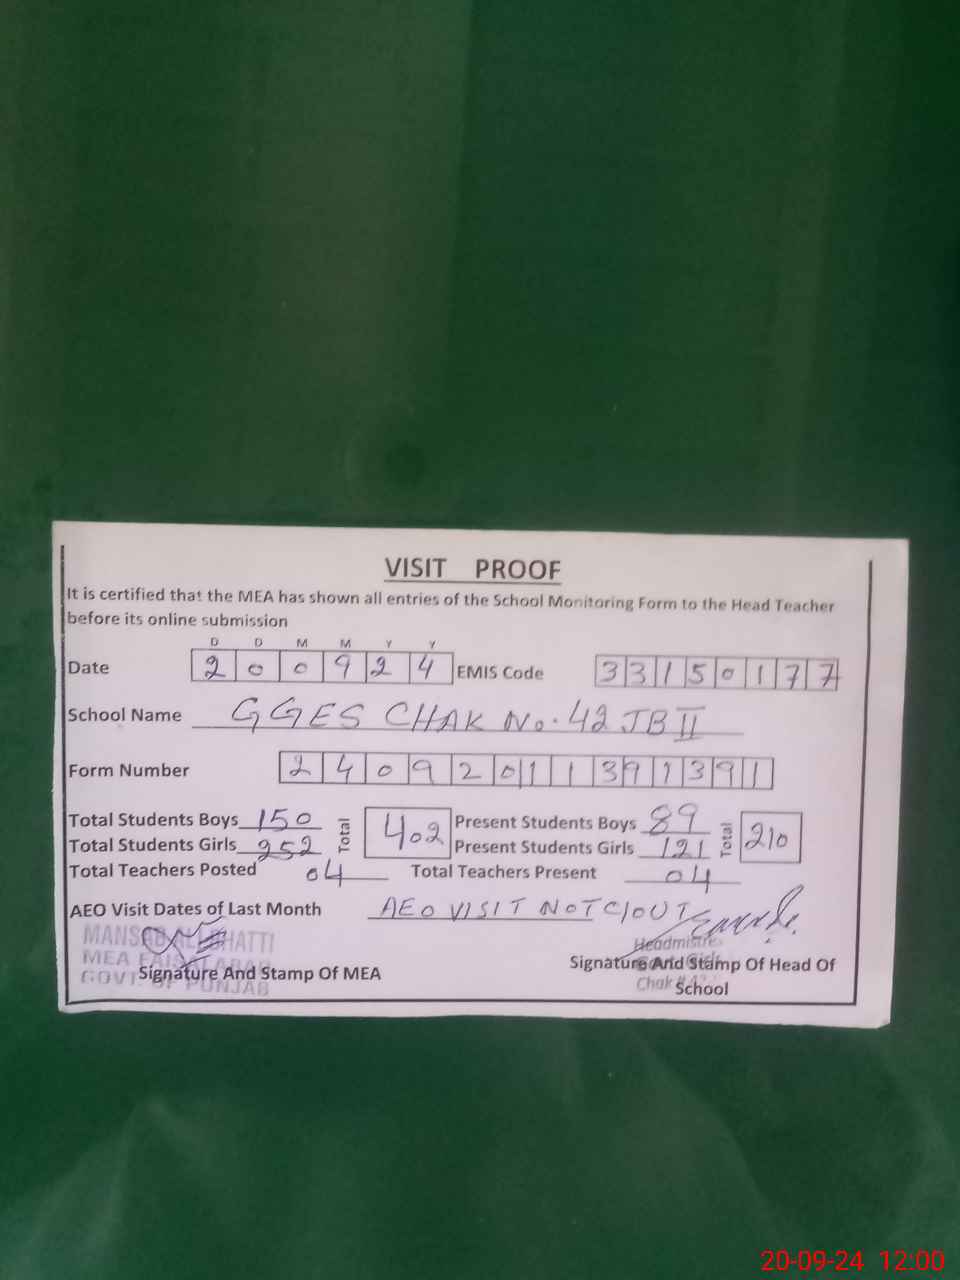 VISIT PROOF
It is certified that the MEA has shown all entries of the School Monitoring Form to the Head Teacher
before its online submission
D D M M Y Y
Date 2 0 0 9 2 4 EMIS Code 3 3 1 5 0 1 7 7
School Name GGES CHAK No. 42 JB II
Form Number 2 4 0 9 2 0 1 1 3 9 1 3 9 1
Total Students Boys 150 Total 402 Present Students Boys 89 Total 210
Total Students Girls 252 Present Students Girls 121
Total Teachers Posted 04 Total Teachers Present 04
AEO Visit Dates of Last Month AEO VISIT NOT
MANSAB ALI BHATTI
MEA FAISALABAD
GOVT. OF PUNJAB
Signature And Stamp Of MEA
Headmistress
Chak #
Signature And Stamp Of Head Of
School
20-09-24 12:00